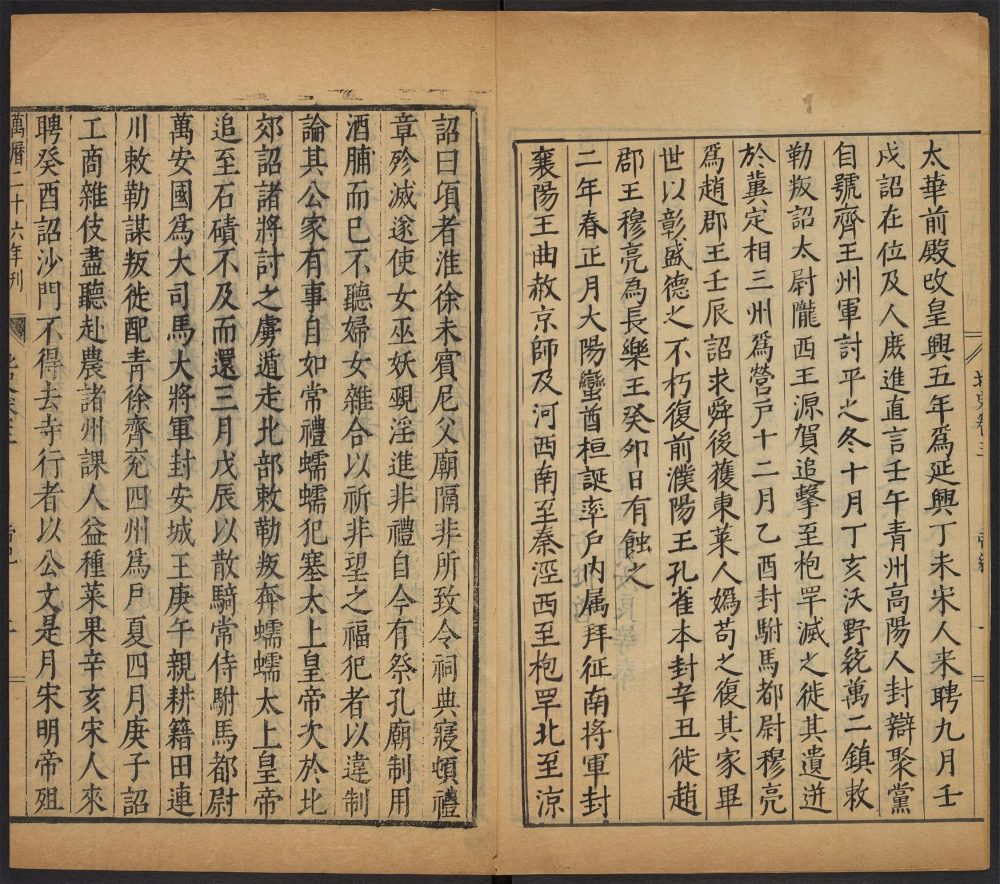 太華前殿改皇興五年爲延興丁未宋人來聘九月壬
戌詔在位及人庶進直言壬午青州高陽人封辯聚黨
自號齊王州軍討平之冬十月丁亥沃野統萬二鎮敕
勒叛詔太尉隴西王源賀追擊至枹罕滅之徙其遺迸
於冀定相三州爲營戸十二月乙酉封駙馬都尉穆亮
爲趙郡王壬辰詔求舜後獲東萊人嬀苟之復其家畢
世以彰盛德之不朽復前濮陽王孔雀本封辛丑徙趙
郡王穆亮為長樂王癸卯日有蝕之
二年春正月大陽蠻酋桓誕率戸内属拜征南將軍封
襄陽王曲赦京師及河西南至秦涇西至枹罕北至涼
詔曰項者淮徐未賓尼父廟隔非所致令祠典寢頓禮
章殄滅遂使女巫妖覡淫進非禮自今有祭孔廟制用
酒脯而巳不聽婦女雜合以祈非望之福犯者以違制
論其公家有事自如常禮蠕蠕犯塞太上皇帝次於北
郊詔諸將討之虜遁走北部敕勒叛奔蠕蠕太上皇帝
追至石磧不及而還三月戊辰以散騎常侍駙馬都尉
萬安國爲大司馬大將軍封安城王庚午親耕籍田連
川敕勒謀叛徙配青徐齊兖四州爲戸夏四月庚子詔
工商雜伎盡聽赴農諸州課人益種菜果辛亥宋人來
聘癸酉詔沙門不得去寺行者以公文是月宋明帝殂
萬曆二十六年刊